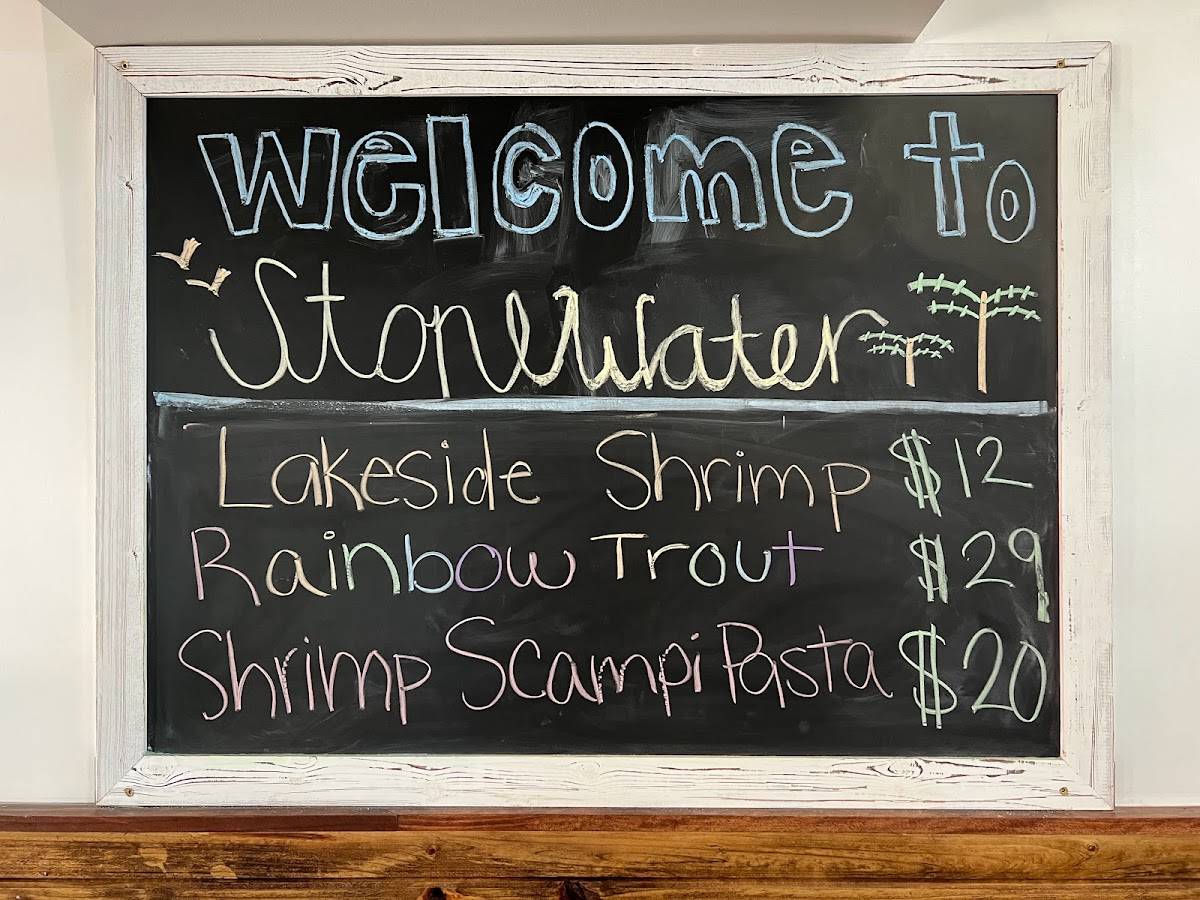 Welcome to
StoneWater
Lakeside Shrimp $12
Rainbow Trout $29
Shrimp Scampi Pasta $20